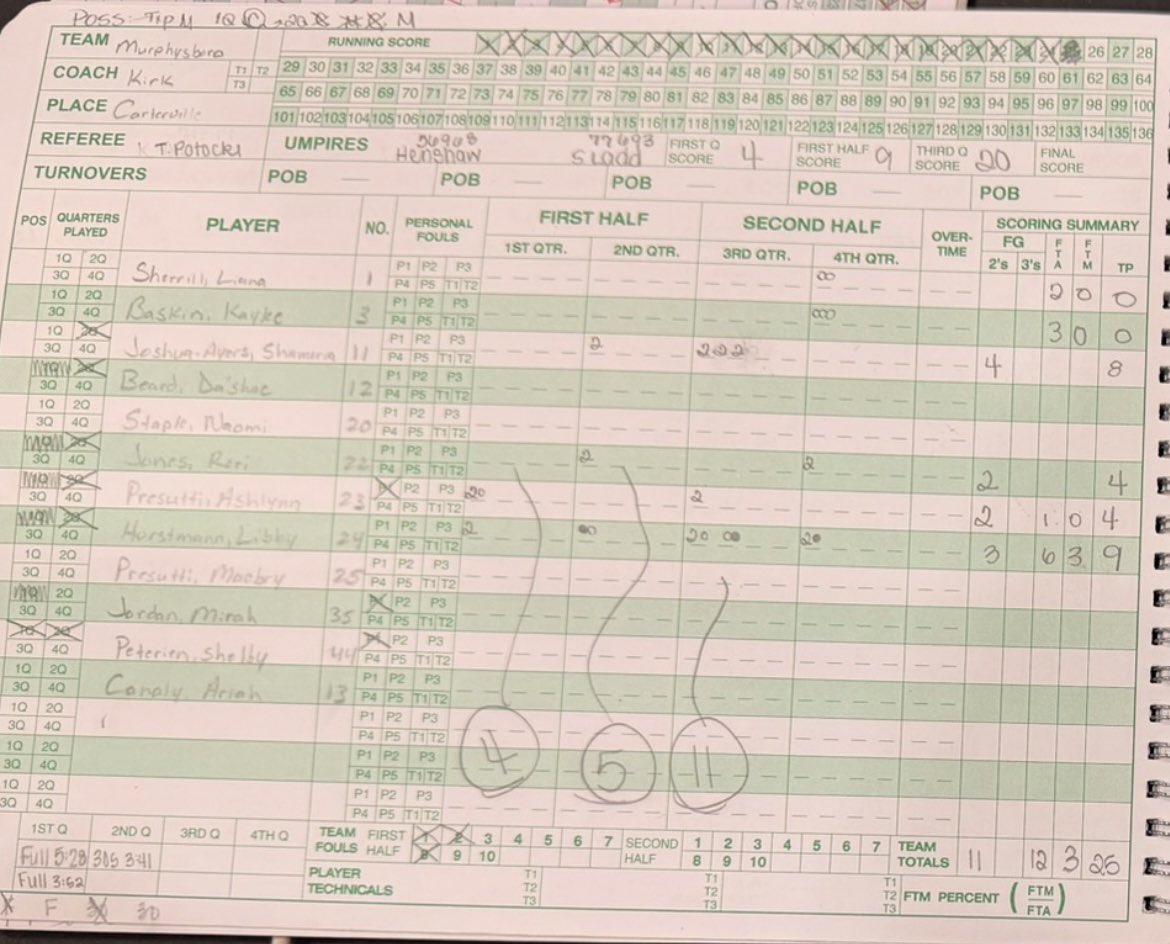 POSS: Tip M 1Q M
TEAM Murphysboro RUNNING SCORE 26 27 28
COACH Kirk T1 T2 T3 29 30 31 32 33 34 35 36 37 38 39 40 41 42 43 44 45 46 47 48 49 50 51 52 53 54 55 56 57 58 59 60 61 62 63 64
65 66 67 68 69 70 71 72 73 74 75 76 77 78 79 80 81 82 83 84 85 86 87 88 89 90 91 92 93 94 95 96 97 98 99 100
PLACE Carterville 101 102 103 104 105 106 107 108 109 110 111 112 113 114 115 116 117 118 119 120 121 122 123 124 125 126 127 128 129 130 131 132 133 134 135 136
REFEREE T. Potocki UMPIRES 56908 Henshaw 77693 FIRST Q SCORE 4 FIRST HALF SCORE 9 THIRD Q SCORE 20 FINAL SCORE
TURNOVERS POB POB POB POB POB
POS QUARTERS PLAYED PLAYER NO. PERSONAL FOULS FIRST HALF SECOND HALF OVER-TIME SCORING SUMMARY
1ST QTR. 2ND QTR. 3RD QTR. 4TH QTR. FG 2's 3's FTA FTM TP
1Q 2Q P1 P2 P3
3Q 4Q Sherrill, Liana 1 P4 P5 T1 T2 00 2 0 0
1Q 2Q P1 P2 P3
3Q 4Q Baskin, Kayke 3 P4 P5 T1 T2 000 3 0 0
1Q 2Q P1 P2 P3
3Q 4Q Joshua-Ayers, 11 P4 P5 T1 T2 2 222 4 8
2Q P1 P2 P3
3Q 4Q Beard, Da'shae 12 P4 P5 T1 T2
1Q 2Q P1 P2 P3
3Q 4Q Staple, Naomi 20 P4 P5 T1 T2
2Q P1 P2 P3
3Q 4Q Jones, Rori 22 P4 P5 T1 T2 2 2 2 4
2Q P1 P2 P3
3Q 4Q Presutti, Ashlynn 23 P4 P5 T1 T2 20 2 2 1 0 4
2Q P1 P2 P3
3Q 4Q Horstmann, Libby 24 P4 P5 T1 T2 2 00 20 00 20 3 6 3 9
1Q 2Q P1 P2 P3
3Q 4Q Presutti, Maebry 25 P4 P5 T1 T2
2Q P1 P2 P3
3Q 4Q Jordan, Mirah 35 P4 P5 T1 T2
1Q 2Q P1 P2 P3
3Q 4Q Petersen, Shelby 44 P4 P5 T1 T2
1Q 2Q P1 P2 P3
3Q 4Q Canaly, Ariah 13 P4 P5 T1 T2
1Q 2Q P1 P2 P3
3Q 4Q P4 P5 T1 T2
4 5 11
1Q 2Q P1 P2 P3
3Q 4Q P4 P5 T1 T2
1Q 2Q P1 P2 P3
3Q 4Q P4 P5 T1 T2
1ST Q 2ND Q 3RD Q 4TH Q TEAM FOULS FIRST HALF 1 2 3 4 5 6 7 8 9 10 SECOND HALF 1 2 3 4 5 6 7 8 9 10 TEAM TOTALS 11 12 3 25
Full 5:28 305 3:41
Full 3:52 PLAYER TECHNICALS T1 T2 T3 T1 T2 T3 T1 T2 T3 FTM PERCENT (FTM/FTA)
F 30 30